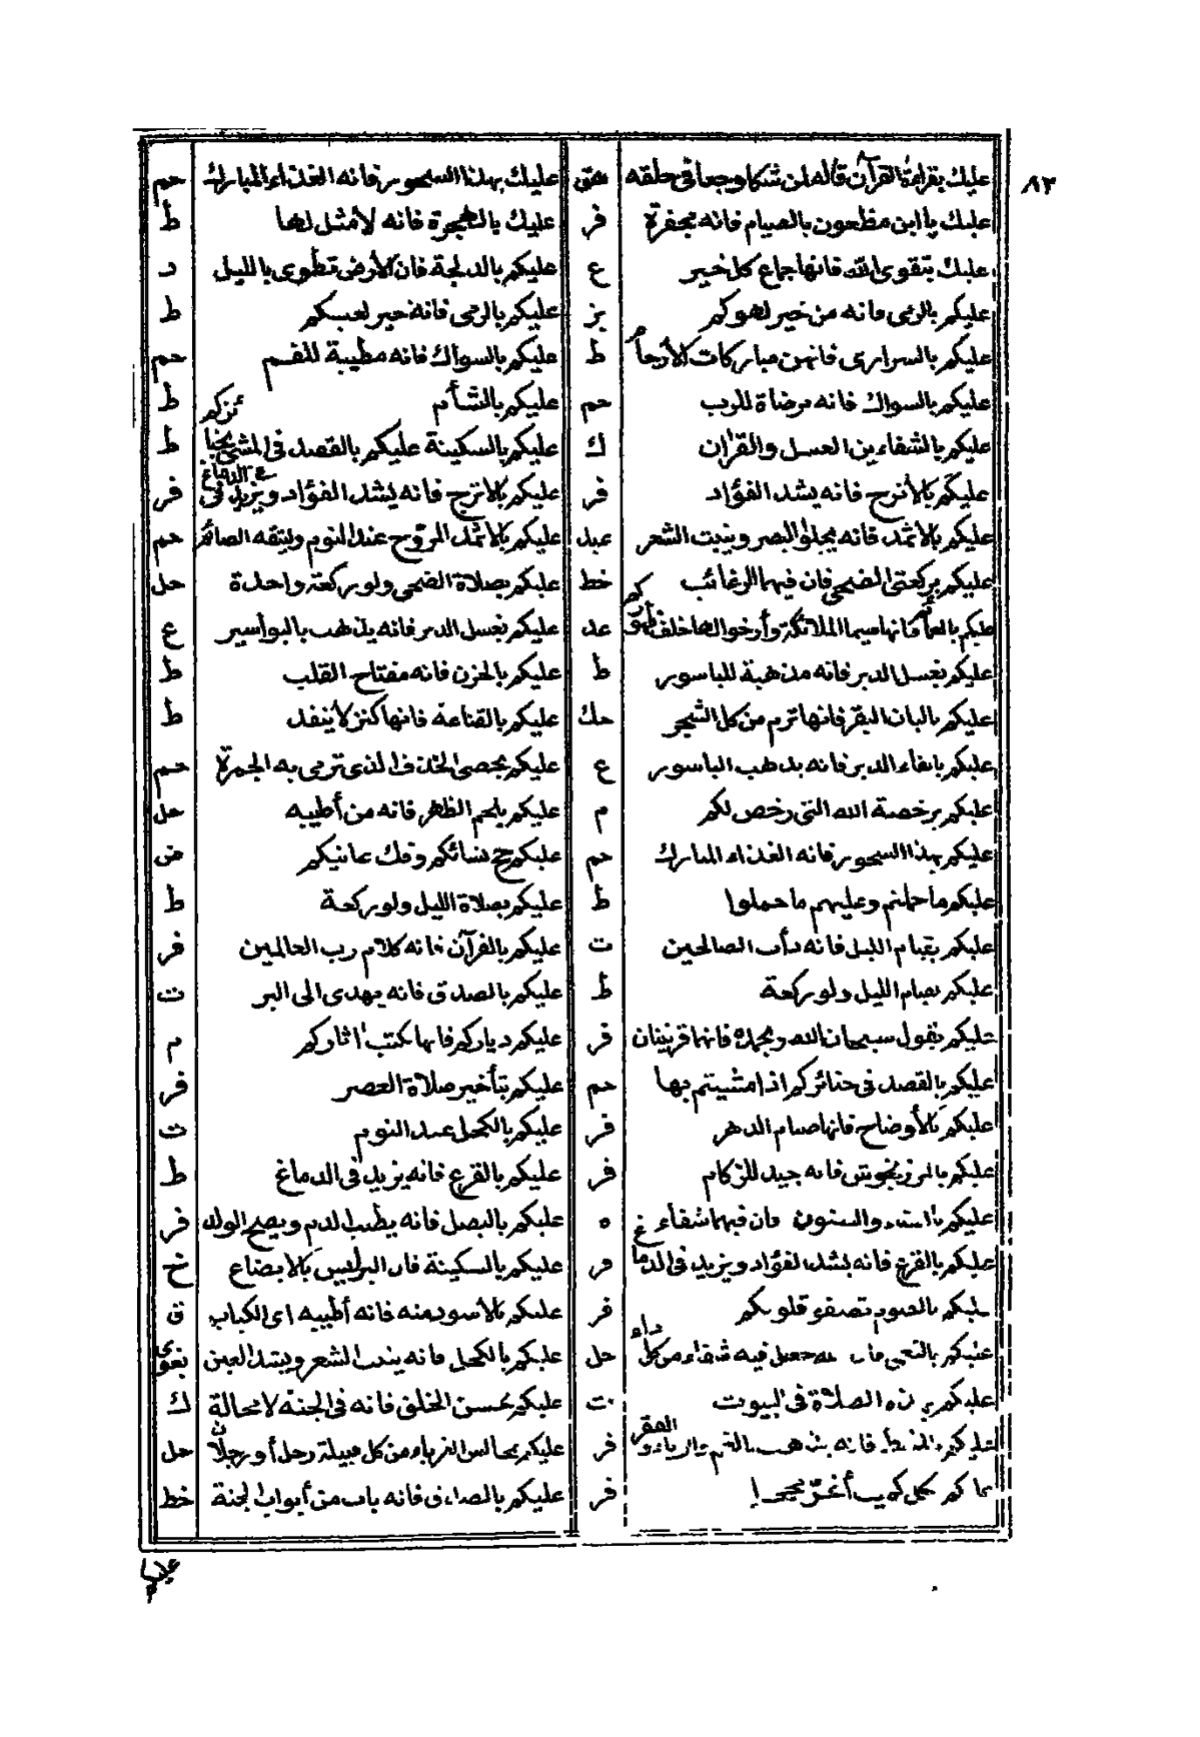 ٨٢
عليك بقراءة القرآن قاله لمن شكا وجعا في حلقه هق
عليك يا ابن مظعون بالصيام فانه مجفرة فر
عليك بتقوى الله فانها جماع كل خير ع
عليكم بالرمى فانه من خير لهوكم بز
عليكم بالسرارى فانهن مباركات الأرحام ط
عليكم بالسواك فانه مرضاة للرب حم
عليكم بالشفاءين العسل والقرآن ك
عليكم بالأترج فانه يشد الفؤاد فر
عليكم بالاثمد فانه يجلو البصر وينبت الشعر عبد
عليكم بركعتى الضحى فان فيهما الرغائب خط
عليكم بالعمائم فانها سيما الملائكة وأرخوا لها خلف ظهوركم عد
عليكم بغسل الدبر فانه مذهبة للباسور ط
عليكم بالبان البقر فانها ترم من كل الشجر حك
عليكم بانقاء الدبر فانه يذهب الباسور ع
عليكم برخصة الله التى رخص لكم م
عليكم بهذا السحور فانه الغذاء المبارك حم
عليكم ما حملتم وعليهم ما حملوا ط
عليكم بقيام الليل فانه دأب الصالحين ت
عليكم بقيام الليل ولو ركعة ط
عليكم بقول سبحان الله وبحمده فانها قرينتان فر
عليكم بالقصد في جنائزكم اذا مشيتم بها حم
عليكم بالأوضاح فانها صيام الدهر فر
عليكم بالمرزنجوش فانه جيد للزكام فر
عليكم بالسناء والسنوت فان فيهما شفاء ه
عليكم بالقرع فانه يشد الفؤاد ويزيد في الدماغ فر
عليكم بالصوم تصفو قلوبكم فر
عليكم جعل فيه شفاء من كل داء حل
عليكم بهذه الصلاة في البيوت ت
فانه يذهب بالفقر فر
عليكم بكل كميت أغر محجل فر
عليك بهذا السحور فانه الغذاء المبارك حم
عليك بالهجرة فانه لا مثل لها ط
عليكم بالدلجة فان الأرض تطوى بالليل د
عليكم بالرمى فانه خير لعبكم ط
عليكم بالسواك فانه مطيبة للفم حم
عليكم بالشأم ط
عليكم بالسكينة عليكم بالقصد في المشى بجنائزكم ط
عليكم بالاترج فانه يشد الفؤاد ويزيد في الدماغ فر
عليكم بالاثمد المروح عند النوم وليتقه الصائم حم
عليكم بصلاة الضحى ولو ركعة واحدة حل
عليكم بغسل الدبر فانه يذهب بالبواسير ع
عليكم بالحزن فانه مفتاح القلب ط
عليكم بالقناعة فانها كنز لا ينفد ط
عليكم بحصى الخذف الذى ترمى به الجمرة حم
عليكم بلحم الظهر فانه من أطيبه حل
عليكم حج نسائكم وفك عانيكم ض
عليكم بصلاة الليل ولو ركعة ط
عليكم بالقرآن فانه كلام رب العالمين فر
عليكم بالصدق فانه يهدى الى البر ت
عليكم دياركم فانها تكتب آثاركم م
عليكم بتأخير صلاة العصر فر
عليكم بالكحل عند النوم ت
عليكم بالقرع فانه يزيد في الدماغ ط
عليكم بالبصل فانه يطيب الدم ويصح الولد فر
عليكم بالسكينة فان البر ليس بالايضاع خ
عليكم بالأسود منه فانه أطيبه اى الكباب ق
عليكم بالكحل فانه ينبت الشعر ويشد العين بغوى
عليكم بحسن الخلق فانه في الجنة لا محالة ك
عليكم من كل قبيلة رجل أو رجلان حل
عليكم بالصدق فانه باب من أبواب الجنة خط
عليكم